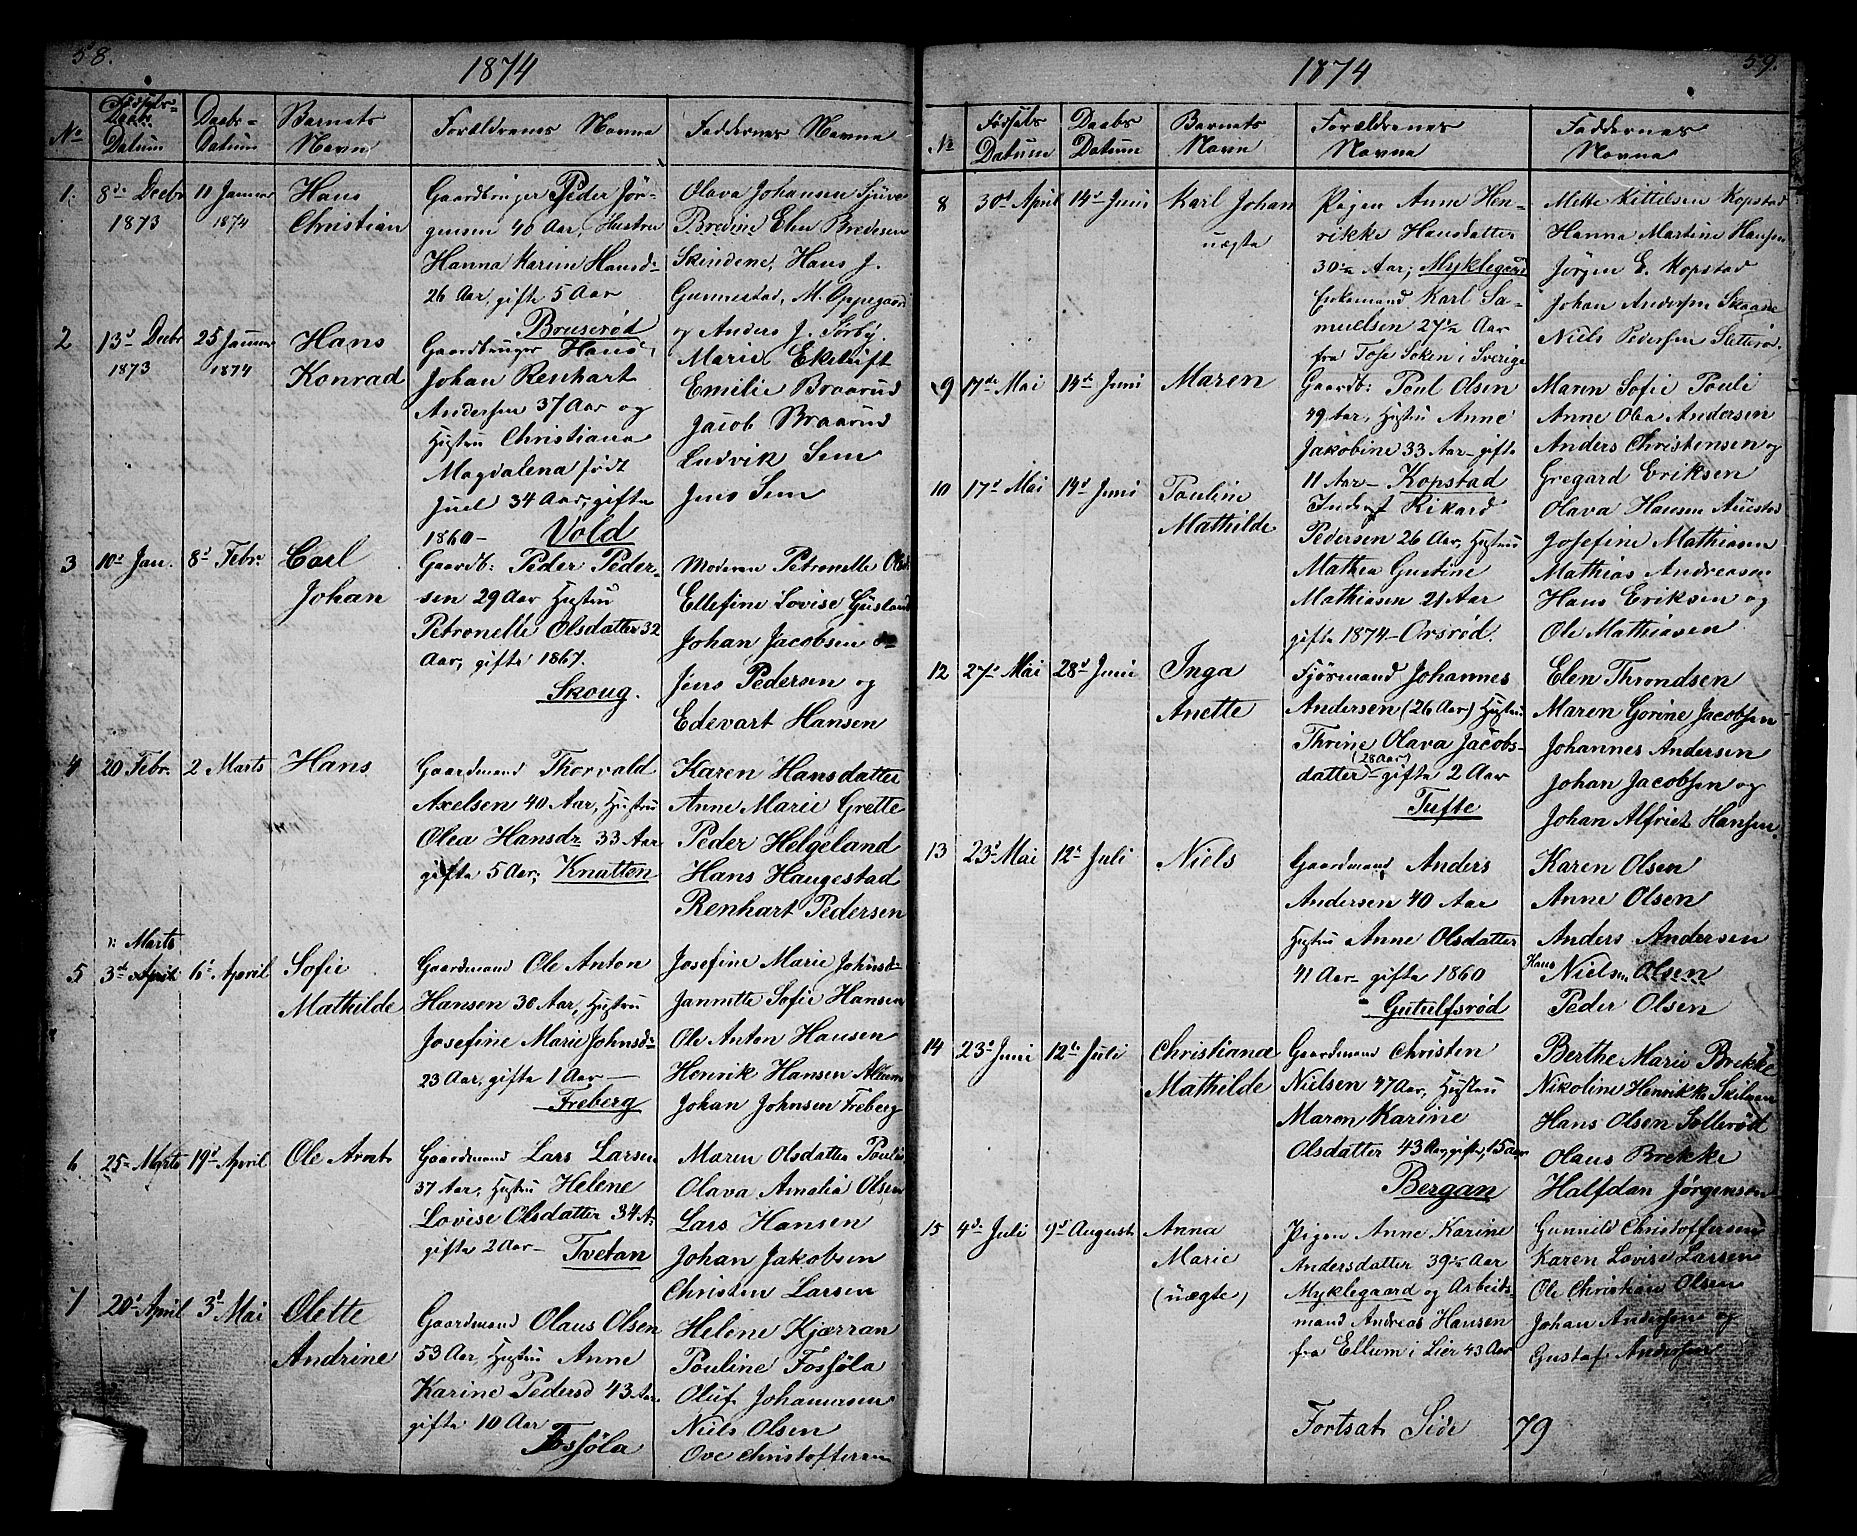 58.
1874
No
Fødsels-
Datum
Daabs-
Datum
Barnets
Navn
Forældrenes Navne
Faddernes Navne
1.
8de Decbr
1873
11 Januar
1874
Hans
Christian
Gaardbruger Peder Jør-
gensen 40 Aar, Hustru
Hanna Karine Hansd:
26 Aar, gifte 5 Aar
Bruserød
Olava Johansen
Bredine Elen Bredesen
Skindene, Hans J.
Gunnestad, M. Oppegaard
og Anders J. Sørby
2
13d Decbr
1873
25 Januar
1874
Hans
Konrad
Gaardbruger Hans
Johan Renhart
Andersen 37 Aar og
Hustru Christiana
Magdalena født
Juel 34 Aar, gifte
1860 - Vold
Marie Ekedrift
Emilie Braarud
Jacob Braarud
Ludvik Sem
Jens Sem
3
10d Jan.
8d Febr.
Carl
Johan
Gaardb: Peder Peder-
sen 29 Aar Hustru
Petronelle Olsdatter 32
Aar, gifte 1867.
Skoug.
Moderen Petronelle Olsd.
Ellefine Lovise
Johan Jacobsen
Jens Pedersen og
Edevart Hansen
4
20 Febr.
2 Marts
Hans
Gaardmand Thorvald
Axelsen 40 Aar, Hustru
Olea Hansdr 33 Aar
gifte 5 Aar, Knatten
Karen Hansdatter
Anne Marie Grette
Peder Helgeland
Hans Haugestad
Renhart Pedersen
5
Marts
3d April
6d April
Sofie
Mathilde
Gaardmand Ole Anton
Hansen 30 Aar, Hustru
Josefine Marie Johnsd:
23 Aar, gifte 1 Aar —
Freberg
Josefine Marie Johnsd:
Jannette Sofie Hansen
Ole Anton Hansen
Henrik Hansen
Johan Johnsen Freberg
6.
25 Marts
19d April
Ole Arnt
Gaardmand Lars Larsen
37 Aar, Hustru Helene
Lovise Olsdatter 34 A.
gifte 2 Aar - Tvetan
Maren Olsdatter
Olava Amalia Olsen
Lars Hansen
Johan Jakobsen
Christen Larsen
7
20d April
3d Mai
Olette
Andrine
Gaardmand Olaus Olsen
53 Aar, Hustru Anne
Karine Pedersd 43 Aar
gifte 10 Aar
Fossøla
Helene Kjærran
Pouline Fossøla
Oluf Johannesen
Niels Olsen
Ove Christoffersen
59.
1874
No
Fødsels
Datum
Daabs
Datum
Barnets
Navn
Forældrenes
Navne
Faddernes
Navne
8
30d April
14d Juni
Karl Johan
uægte
Pigen Anne Hen-
rikke Hansdatter
30 Aar, Myklegaard
Enkemand Karl Sa-
muelsen 27 Aar
fra Tose Soken i Sverige
Mette Kittelsen Kopstad
Hanna Martine Hansen
Jørgen E. Kopstad
Johan Andersen
Niels Pedersen
9
17de Mai
14d Juni
Maren
Gaardb: Poul Olsen
49 Aar, Hustru Anne
Jakobine 33 Aar - gifte
11 Aar - Kopstad
Maren Sofie Pouli
Anne Olea Andersen
Anders Christensen og
Gregard Eriksen
10
17d Mai
14d Juni
Pouline
Mathilde
Inderst Rikard
Pedersen 26 Aar, Hustru
Mathea Gustine
Mathiasen 21 Aar
gifte 1874 - Orsrød.
Olava Hansen
Josefine Mathiasen
Mathias Andreasen
Hans Eriksen og
Ole Mathiasen
12
27d Mai
28d Juni
Inga
Anette
Sjømand Johannes
Andersen (26 Aar) Hustru
Thrine Olava Jacobs-
(28 Aar)
datter - gifte 2 Aar
Tufte
Elen Throndsen
Maren Gorine Jacobsen
Johannes Andersen
Johan Jacobsen og
Johan Alfriet Hansen.
13
23d Mai
12d Juli
Niels
Gaardmand Anders
Andersen 40 Aar
Hustru Anne Olsdatter
41 Aar - gifte 1860
Gutulfsrød
Karen Olsen
Anne Olsen
Anders Andersen
Hans Nielsen Olsen
Peder Olsen
14
23d Juni
12te Juli
Christiane
Mathilde
Gaardmand Christen
Nielsen 47 Aar, Hustru
Maren Karine
Olsdatter 43 Aar, gifte, 15 Aar
Bergan
Berthe Marie Brekke
Nikoline Henrikke
Hans Olsen Solterød
Olaus Brekke
Halfdan Jørgensen
15
4d Juli
9d August
Anna
Marie
(uægte)
Pigen Anne Karine
Andersdatter 39 Aar
Myklegaard og Arbeids-
mand Andreas Hansen
fra Ellum i Lier 43 Aar
Gunnild Christoffersen
Karen Lovise Larsen
Ole Christian Olsen
Johan Andersen og
Gustaf Andersen
Fortsat Side 79